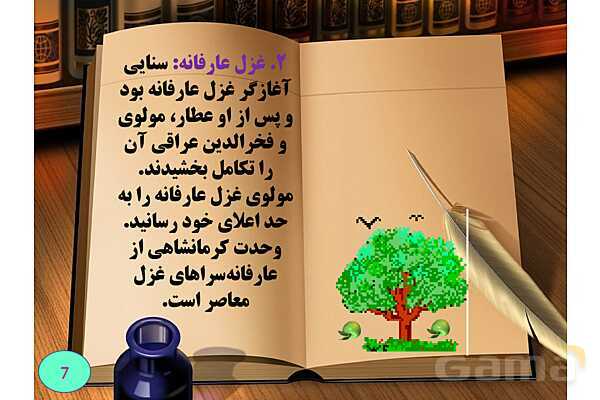 ۲. غزل عارفانه: سنایی
آغازگر غزل عارفانه بود
و پس از او عطار، مولوی
و فخرالدین عراقی آن
را تکامل بخشیدند.
مولوی غزل عارفانه را به
حد اعلای خود رسانید.
وحدت کرمانشاهی از
عارفانه‌سراهای غزل
معاصر است.
7
Gama